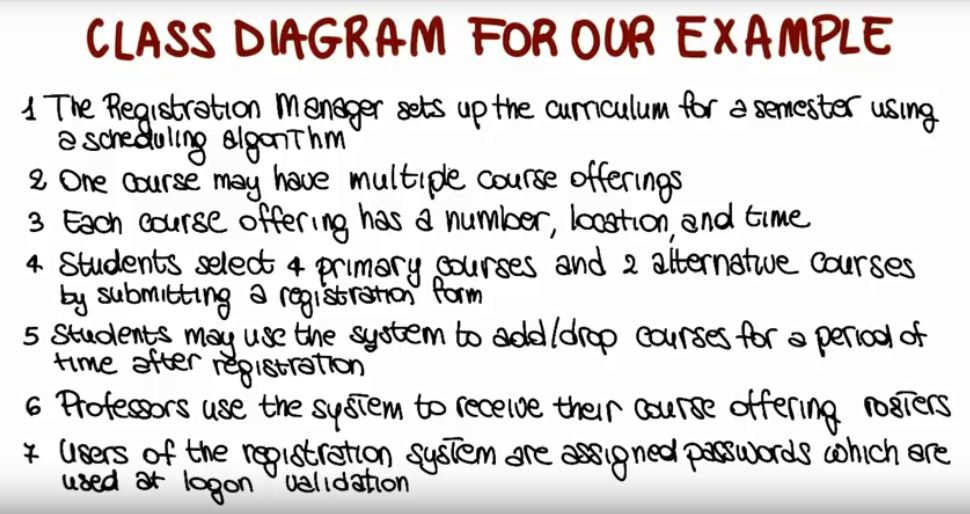 CLASS DIAGRAM FOR OUR EXAMPLE
1 The Registration Manager sets up the curriculum for a semester using
a scheduling algorithm
2 One course may have multiple course offerings
3 Each course offering has a number, location, and time
4 Students select 4 primary courses and 2 alternative courses
by submitting a registration form
5 Students may use the system to add/drop courses for a period of
time after registration
6 Professors use the system to receive their course offering rosters
7 Users of the registration system are assigned passwords which are
used at logon validation